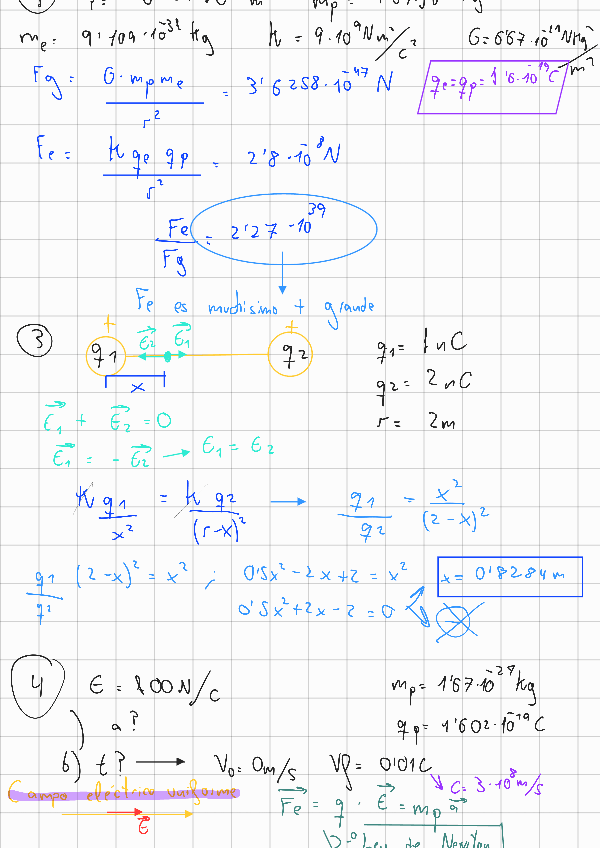 me = 9'109·10^-31 Kg    K = 9·10^9 Nm²/C²    G=6'67·10^-11 NKg²/m²
Fg = G·mp·me / r² = 3'6258·10^-47 N
qe=qp=1'6·10^-19 C
Fe = K qe qp / r² = 2'8·10^-8 N
Fe/Fg = 2'27·10^39
Fe es muchisimo + grande
3
+ +
E2 E1
q1 q2
x
q1= 1nC
q2= 2nC
r= 2m
E1 + E2 = 0
E1 = -E2 → E1 = E2
K q1 / x² = K q2 / (r-x)² → q1/q2 = x²/(2-x)²
q1/q2 (2-x)² = x² ; 0'5x²-2x+2 = x²
x= 0'8284m
0'5x²+2x-2=0
4 E = 100N/C
mp= 1'67·10^-27 kg
) a?
qp= 1'602·10^-19 C
b) t? → V0= 0m/s Vf= 0'01C
C= 3·10^8 m/s
Campo eléctrico uniforme
E
Fe = q · E = mp a
2ª Ley de Newton